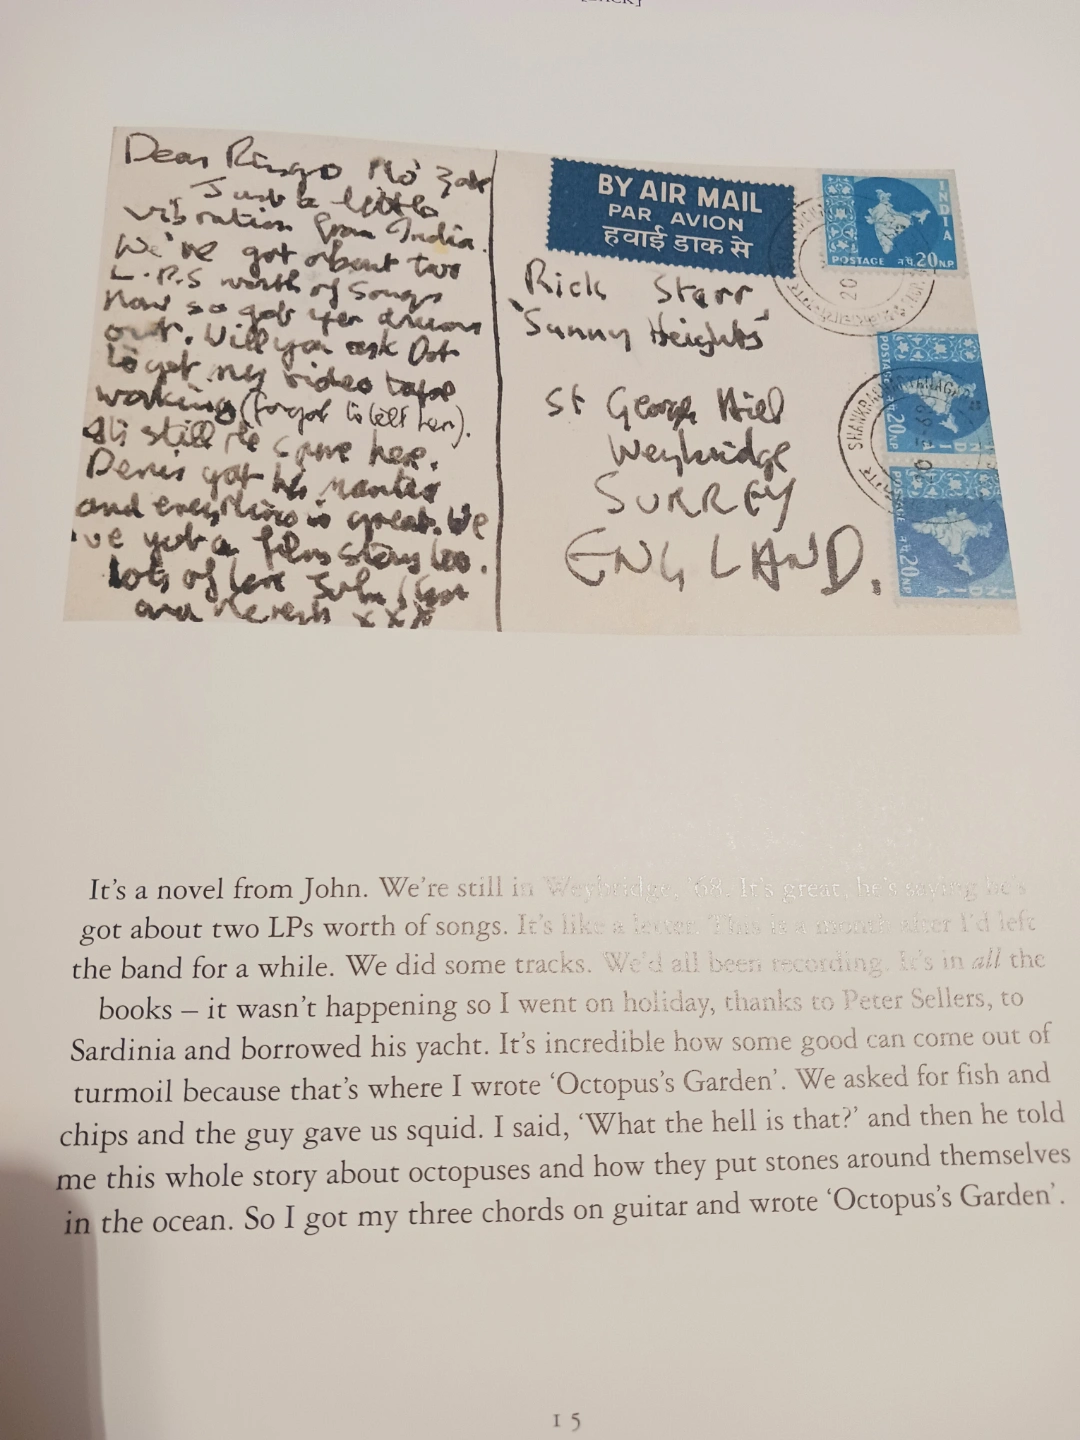 Dear Ringo Mo' Zak
Just a little
vibration from India.
We've got about two
L.P.S worth of songs
now so get yer drums
out. Will you ask Dot
to get my video tape
working (forgot to tell her).
still the same here.
Denis got his mantra
and everything is great. We
've got a film story too.
lots of love John
and x x x
BY AIR MAIL
PAR AVION
हवाई डाक से
INDIA
POSTAGE न.प. 20 NP
Rick Starr
'Sunny Heights'
St George Hill
Weybridge
SURREY
ENGLAND.
POSTAGE न.प. 20 NP
INDIA
POSTAGE न.प. 20 NP
INDIA
It's a novel from John. We're still in Weybridge, '68. It's great, he's saying he's
got about two LPs worth of songs. It's like a letter. This is a month after I'd left
the band for a while. We did some tracks. We'd all been recording. It's in all the
books – it wasn't happening so I went on holiday, thanks to Peter Sellers, to
Sardinia and borrowed his yacht. It's incredible how some good can come out of
turmoil because that's where I wrote 'Octopus's Garden'. We asked for fish and
chips and the guy gave us squid. I said, 'What the hell is that?' and then he told
me this whole story about octopuses and how they put stones around themselves
in the ocean. So I got my three chords on guitar and wrote 'Octopus's Garden'.
15